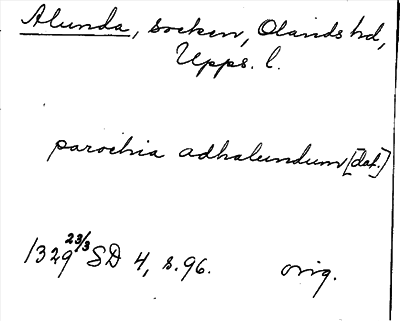 Alunda, socken, Olands hd,
Upps. l.
parochia adhalundum [dat.]
1329 23/3 SD 4, s. 96. orig.